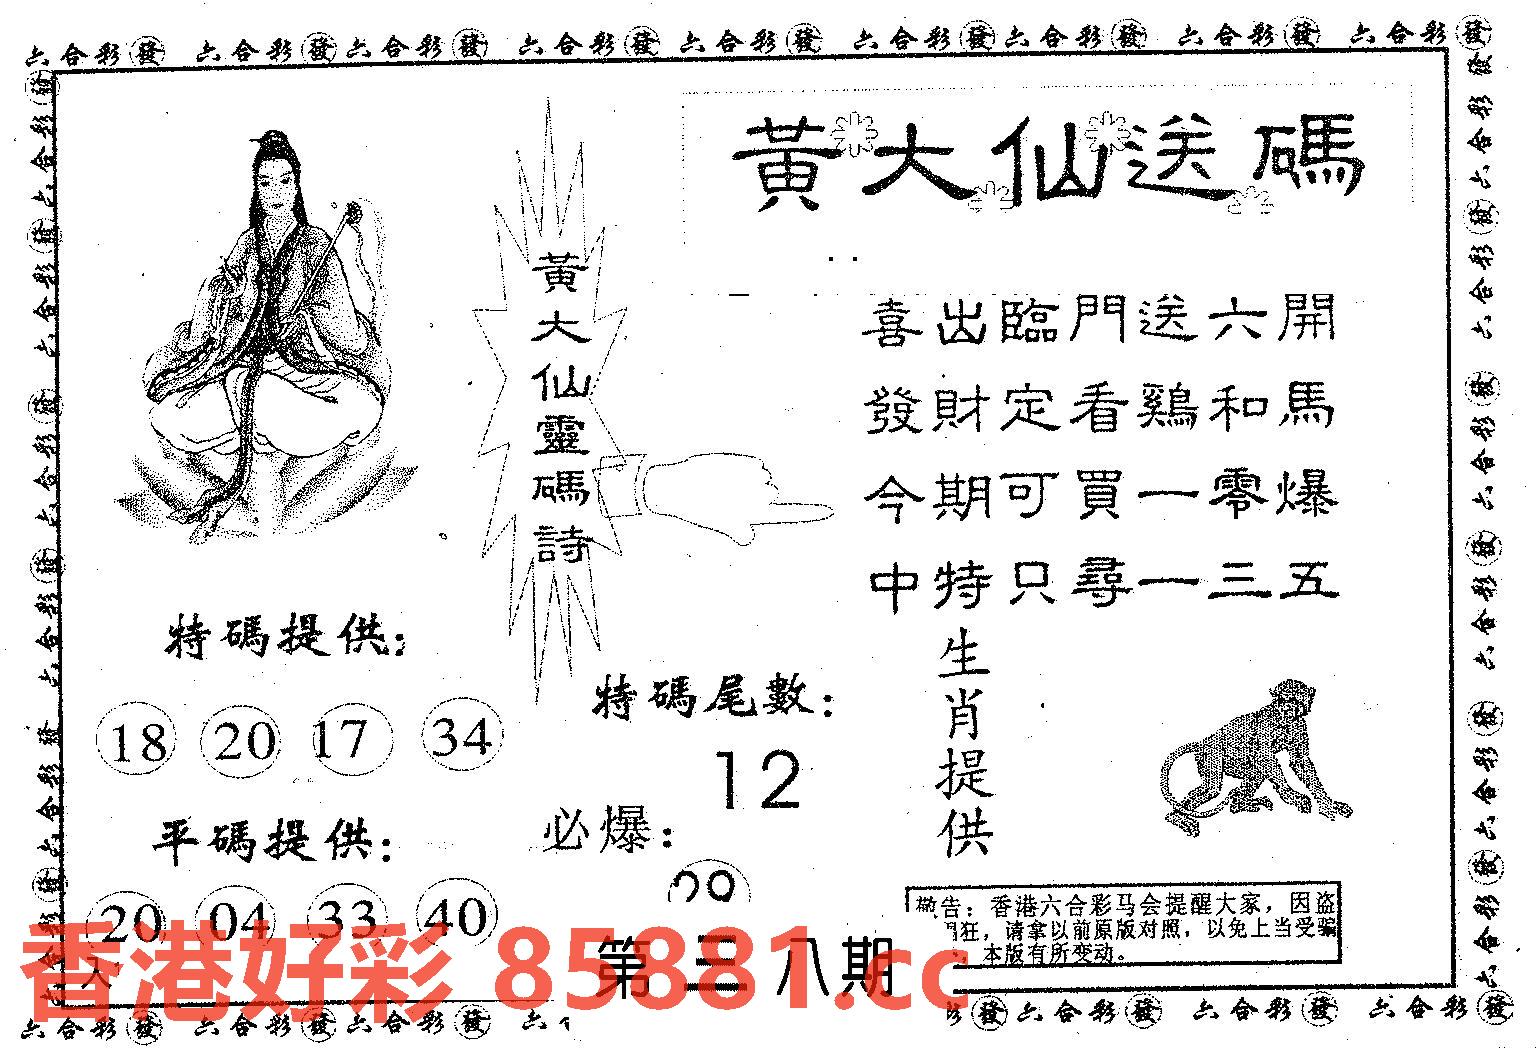 六合彩發 六合彩發六合彩發 六合彩發 六合彩發 六合彩發六合彩發 六合彩發 六合彩發
黃大仙送碼
黃大仙靈碼詩
喜出臨門送六開
發財定看鷄和馬
今期可買一零爆
中特只尋一三五
特碼提供：
18 20 17 34
平碼提供：
20 04 33 40
特碼尾數：
12
必爆：
生肖提供
告：香港六合彩马会提醒大家，因盗
狂，请拿以前原版对照，以免上当受骗
本版有所变动。
第三八期
香港好彩 85881.cc
六合彩發 六合彩發六合彩發 六 發六合彩發 六合彩發 六合彩發